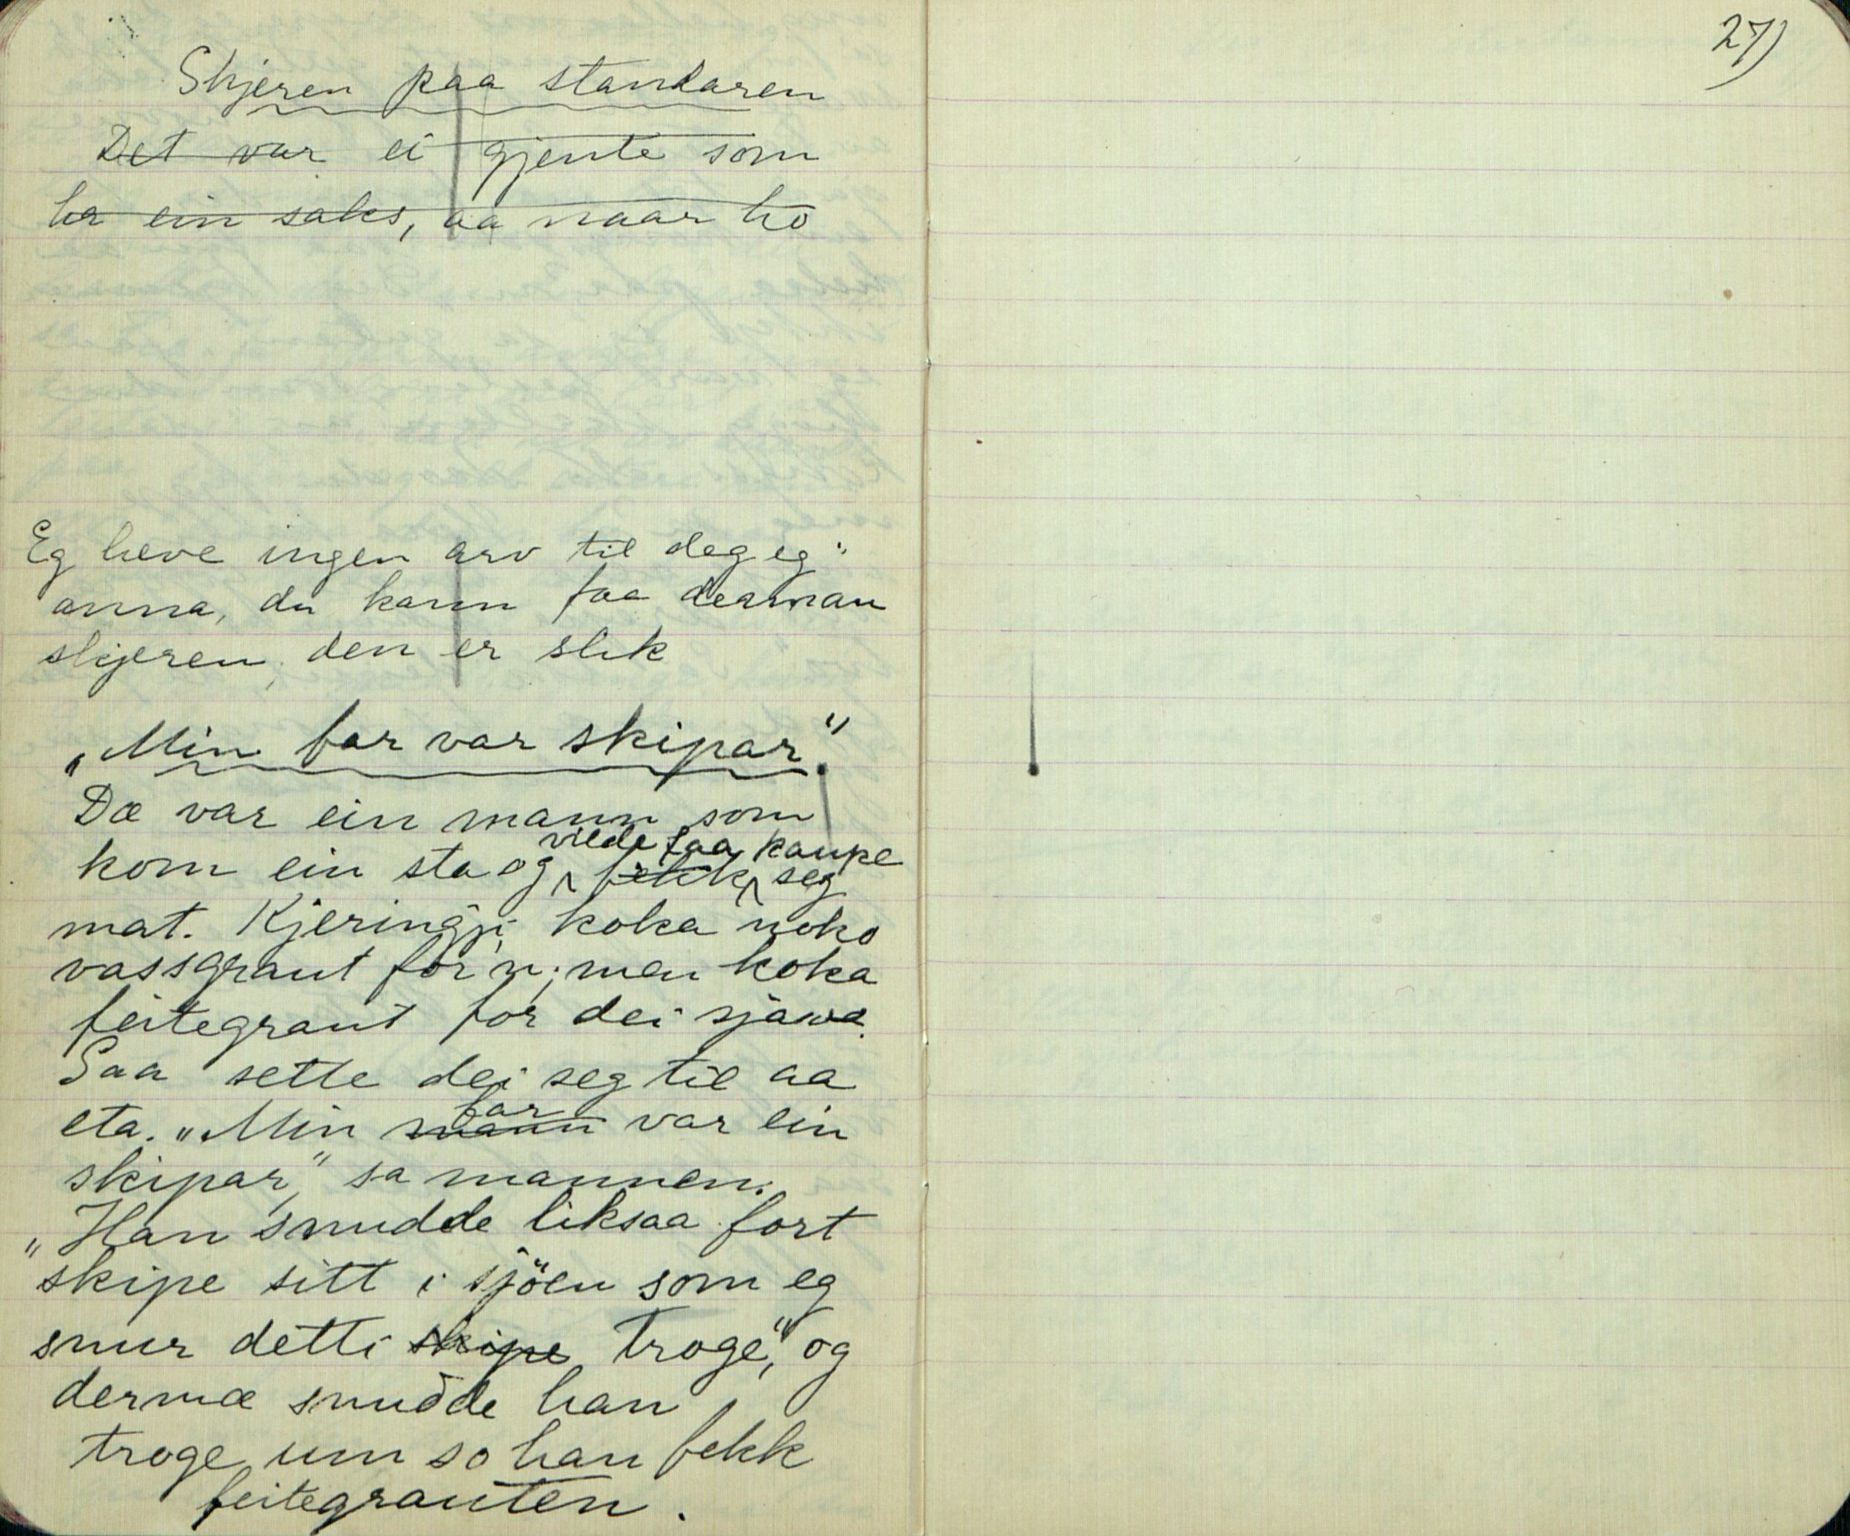 27)
Skjeren paa standaren
Det var ei gjente som
ha ein saks, aa naar ho
Eg heve ingen arv til deg eg"
anna, du kann faa
skjeren, den er slik
"Min far var skipar".
Dæ var ein mann som
kom ein sta og vilde faa kaupe
fekk seg
mat. Kjeringji koka noko
vassgraut for'n; men koka
feitegraut for dei sjawe.
Saa sette dei seg til aa
eta. "Min mann far var ein
skipar" sa mannen.
"Han snudde liksaa fort
skipe sitt i sjöen som eg
snur detti skipe troge", og
dermæ snudde han
troge um so han fekk
feitegrauten.